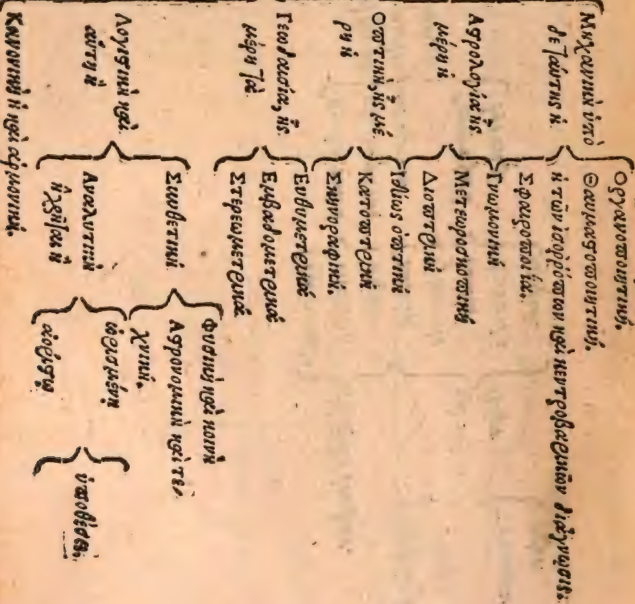 Οργανοποιητική,
Θαυματοποιητική,
Μηχανικὴ ὑπὸ
δὲ ταύτης ἡ
ἡ τῶν ἰσορρόπων καὶ κεντροβαρικῶν διάγνωσις.
Σφαιροποιία.
Αϛρολογία ἧς
μέρη ἡ
Γνωμονικὴ
Μετεωροσκοπικὴ
Διοπτρικὴ
Οπτικὴ, ἧς μέ
ρη ἡ
Ιδίως ὀπτικὴ
Κατοπτρικὴ
Σκηνογραφική.
Γεωδαισία, ἧς
μέρη τὰ
Ευθυμετρικὰ
Εμβαδομετρικὰ
Στερεωμετρικὰ
Λογιστικὴ καὶ
αὕτη ἡ
Συνθετικὴ
Φυσικὴ καὶ κοινὴ
Αϛρονομικὴ καὶ τε
χνική.
Αναλυτικὴ
ὡρισμένη
ἀορίστῳ
ὑποθέσει.
Κανονικὴ ἡ καὶ ἁρμονική.